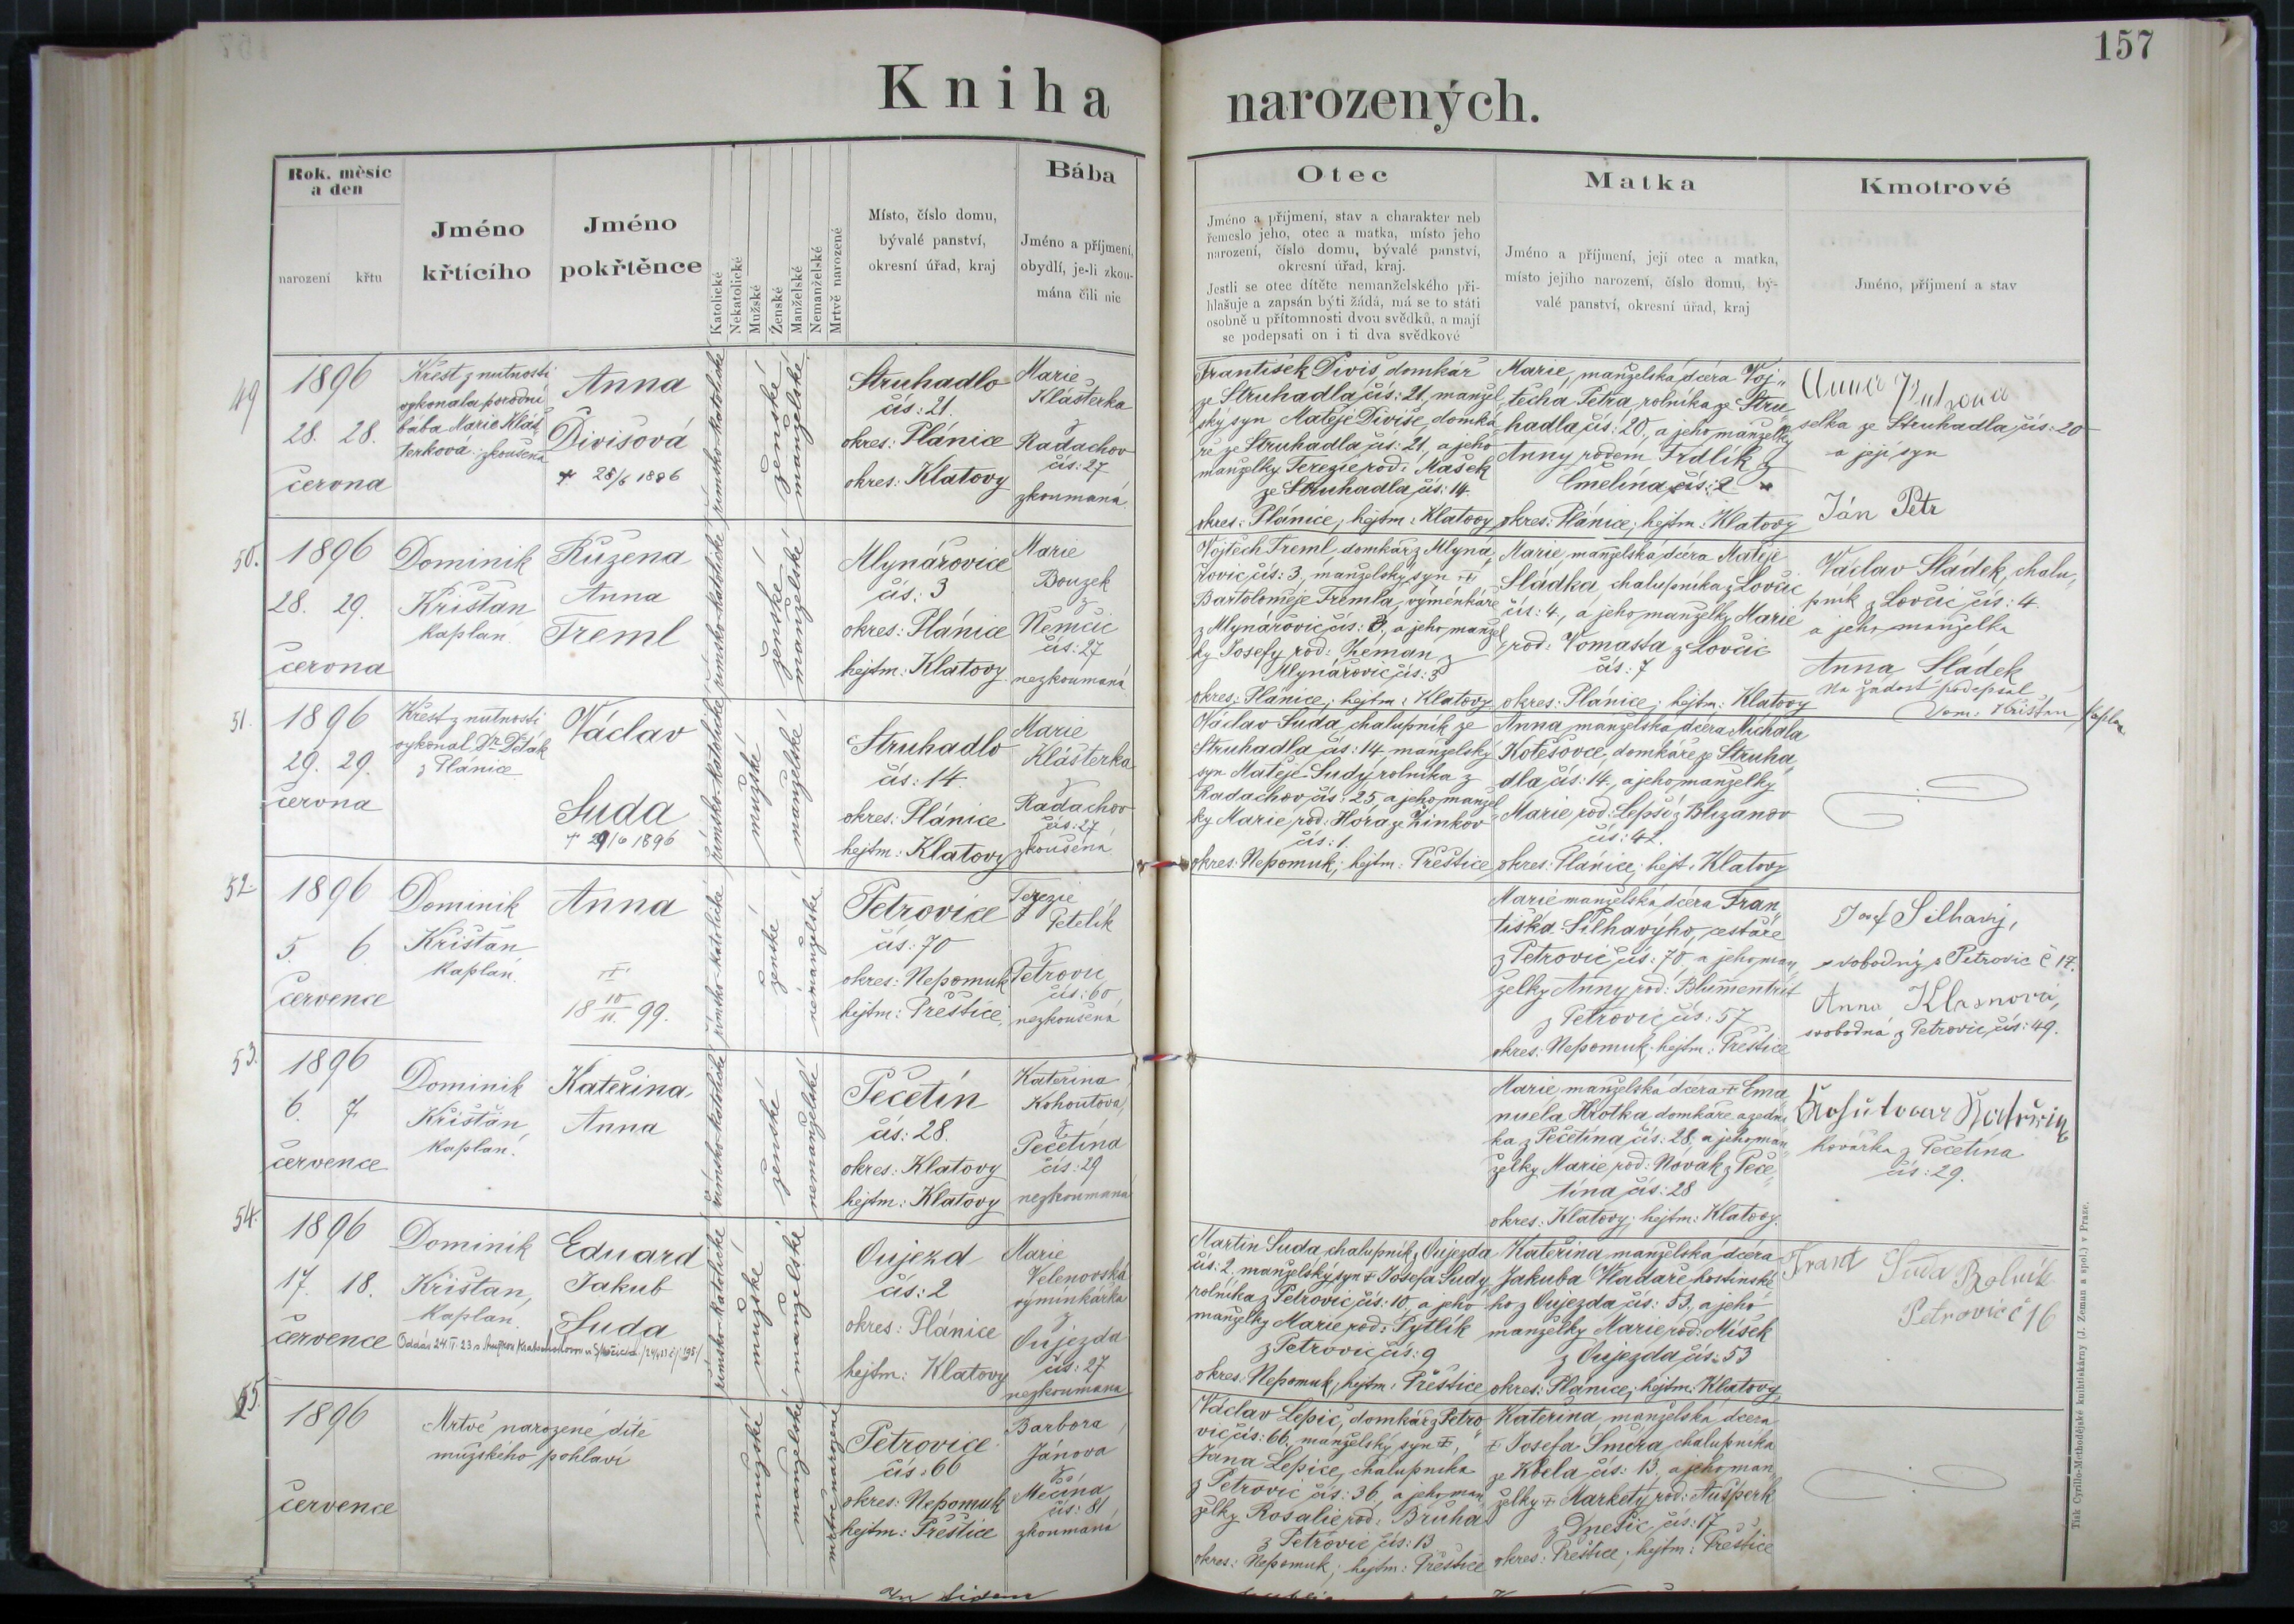 157
Kniha narozených.
Rok, měsíc a den
narození
křtu
Jméno křtícího
Jméno pokřtěnce
Katolické
Nekatolické
Mužské
Ženské
Manželské
Nemanželské
Mrtvě narozené
Místo, číslo domu,
bývalé panství,
okresní úřad, kraj
Bába
Jméno a příjmení,
obydlí, je-li zkou-
mána čili nic
Otec
Jméno a příjmení, stav a charakter neb
řemeslo jeho, otec a matka, místo jeho
narození, číslo domu, bývalé panství,
okresní úřad, kraj.
Jestli se otec dítěte nemanželského při-
hlašuje a zapsán býti žádá, má se to státi
osobně u přítomnosti dvou svědků, a mají
se podepsati on i ti dva svědkové
Matka
Jméno a příjmení, její otec a matka,
místo jejího narození, číslo domu, bý-
valé panství, okresní úřad, kraj
Kmotrové
Jméno, příjmení a stav
49
1896
28. 28.
června
Křest z nutnosti
vykonala porodní
bába Marie Kláš-
terková zkoušená
Anna
Divišová
římsko-katolické
ženské
manželské
Struhadlo
čís: 21.
okres: Plánice
okres: Klatovy
Marie
Klášterka
z
Radachov
čís: 27
zkoumaná
František Diviš, domkář
ze Struhadla čís: 21, manžel
ský syn Matěje Diviše, domká
ře ze Struhadla čís: 21, a jeho
manželky Terezie rod: Mašek
ze Struhadla čís: 14.
okres: Plánice; hejtm: Klatovy
Marie, manželská dcera Voj„
těcha Petra, rolníka ze Stru„
hadla čís: 20, a jeho manželky
Anny rodem Frdlík z
Čmelína čís: 2
okres: Plánice; hejtm: Klatovy
Anna
selka ze Struhadla čís: 20
a její syn
Ján Petr
50.
1896
28. 29.
června
Dominik
Křišťan
kaplan.
Růžena
Anna
Treml
římsko-katolické
ženské
manželské
Mlynářovice
čís: 3
okres: Plánice
hejtm: Klatovy
Marie
Bouzek
z
Němčic
čís: 27
nezkoumaná
Vojtěch Treml, domkář z Mlyná„
řovic čís: 3, manželský syn
Bartoloměje Tremla, výměnkáře
z Mlynářovic čís: 3, a jeho manžel
ky Josefy rod: Zeman z
Mlynářovic čís: 3
okres: Plánice; hejtm: Klatovy
Marie, manželská dcera Matěje
Sládka, chalupníka z Lovčic
čís: 4, a jeho manželky Marie
rod: Vomasta z Lovčic
čís: 7
okres: Plánice; hejtm: Klatovy
Václav Sládek, chalu„
pník z Lovčic čís: 4.
a jeho manželka
Anna Sládek
Na žádost podepsal
Dom. Křišťan kaplan
51.
1896
29. 29.
června
Křest z nutnosti
vykonal Dr.
z Plánice
Václav
Suda
římsko-katolické
mužské
manželské
Struhadlo
čís: 14.
okres: Plánice
hejtm: Klatovy
Marie
Klášterka
z
Radachov
čís: 27
zkoušená
Václav Suda, chalupník ze
Struhadla čís: 14, manželský
syn Matěje Sudy, rolníka z
Radachov čís: 25, a jeho manžel
ky Marie rod: Hora ze Žinkov
čís: 1.
okres: Nepomuk; hejtm: Přeštice
Anna, manželská dcera Michala
Kotěšovce, domkáře ze Struha„
dla čís: 14, a jeho manželky
Marie rod: Lepší z Blizanov
čís: 42.
okres: Plánice; hejt: Klatovy
52
1896
5. 6.
července
Dominik
Křišťan
kaplan.
Anna
18 10/II. 99.
římsko-katolické
ženské
nemanželské
Petrovice
čís: 70
okres: Nepomuk
hejtm: Přeštice
Terezie
Petelík
z
Petrovic
čís: 60
nezkoušená
Marie manželská dcera Fran
tiška Šilhavýho, cestáře
z Petrovic čís: 70, a jeho man„
želky Anny rod: Blumentrit
z Petrovic čís: 57
okres: Nepomuk; hejtm: Přeštice
Josef Šilhavý,
svobodný z Petrovic č 17.
Anna
svobodná z Petrovic čís: 49.
53.
1896
6. 7
července
Dominik
Křišťan
kaplan.
Kateřina
Anna
římsko-katolické
ženské
nemanželské
Pečetín
čís: 28.
okres: Klatovy
hejtm: Klatovy
Kateřina
Kohoutová
z
Pečetína
čís: 29
nezkoumaná
Marie, manželská dcera Ema
nuela Hrotka, domkáře a zední
ka z Pečetína čís: 28, a jeho man„
želky Marie rod: Novák z Peče„
tína čís: 28
okres: Klatovy; hejtm: Klatovy.
kovářka z Pečetína
čís: 29.
54.
1896
17. 18.
července
Dominik
Křišťan,
kaplan.
Eduard
Jakub
Suda
římsko-katolické
mužské
manželské
Oujezd
čís: 2
okres: Plánice
hejtm: Klatovy
Marie
Velenovská
výminkářka
z
Oujezda
čís: 27
nezkoumaná
Martin Suda, chalupník z Oujezda
čís: 2. manželský syn Josefa Sudy,
rolníka z Petrovic čís: 10, a jeho
manželky Marie rod: Pytlík
z Petrovic čís: 9
okres: Nepomuk; hejtm: Přeštice
Kateřina manželská dcera
Jakuba Vladaře hostinské„
ho z Oujezda čís: 53, a jeho
manželky Marie rod: Míšek
z Oujezda čís: 53
okres: Plánice; hejtm: Klatovy,
Frant Suda Rolník
Petrovic č 16
55.
1896
července
Mrtvě narozené dítě
mužského pohlaví
mužské
manželské
mrtvě narozené
Petrovice
čís: 66
okres: Nepomuk
hejtm: Přeštice
Barbora
Jánova
z
Měčína
čís: 81
zkoumaná
Václav Lepič, domkář z Petro„
vic čís: 66, manželský syn
Jána Lepiče, chalupníka
z Petrovic čís: 36, a jeho man„
želky Rosalie rod: Bruha
z Petrovic čís: 13
okres: Nepomuk; hejtm: Přeštice
Kateřina, manželská dcera
Josefa Šmíra, chalupníka
ze Kbela čís: 13, a jeho man„
želky Markéty rod: Aušperk
z Dnešic čís: 17
okres: Přeštice; hejtm: Přeštice
Tisk Cyrillo-Methodějské knihtiskárny (J. Zeman a spol.) v Praze.